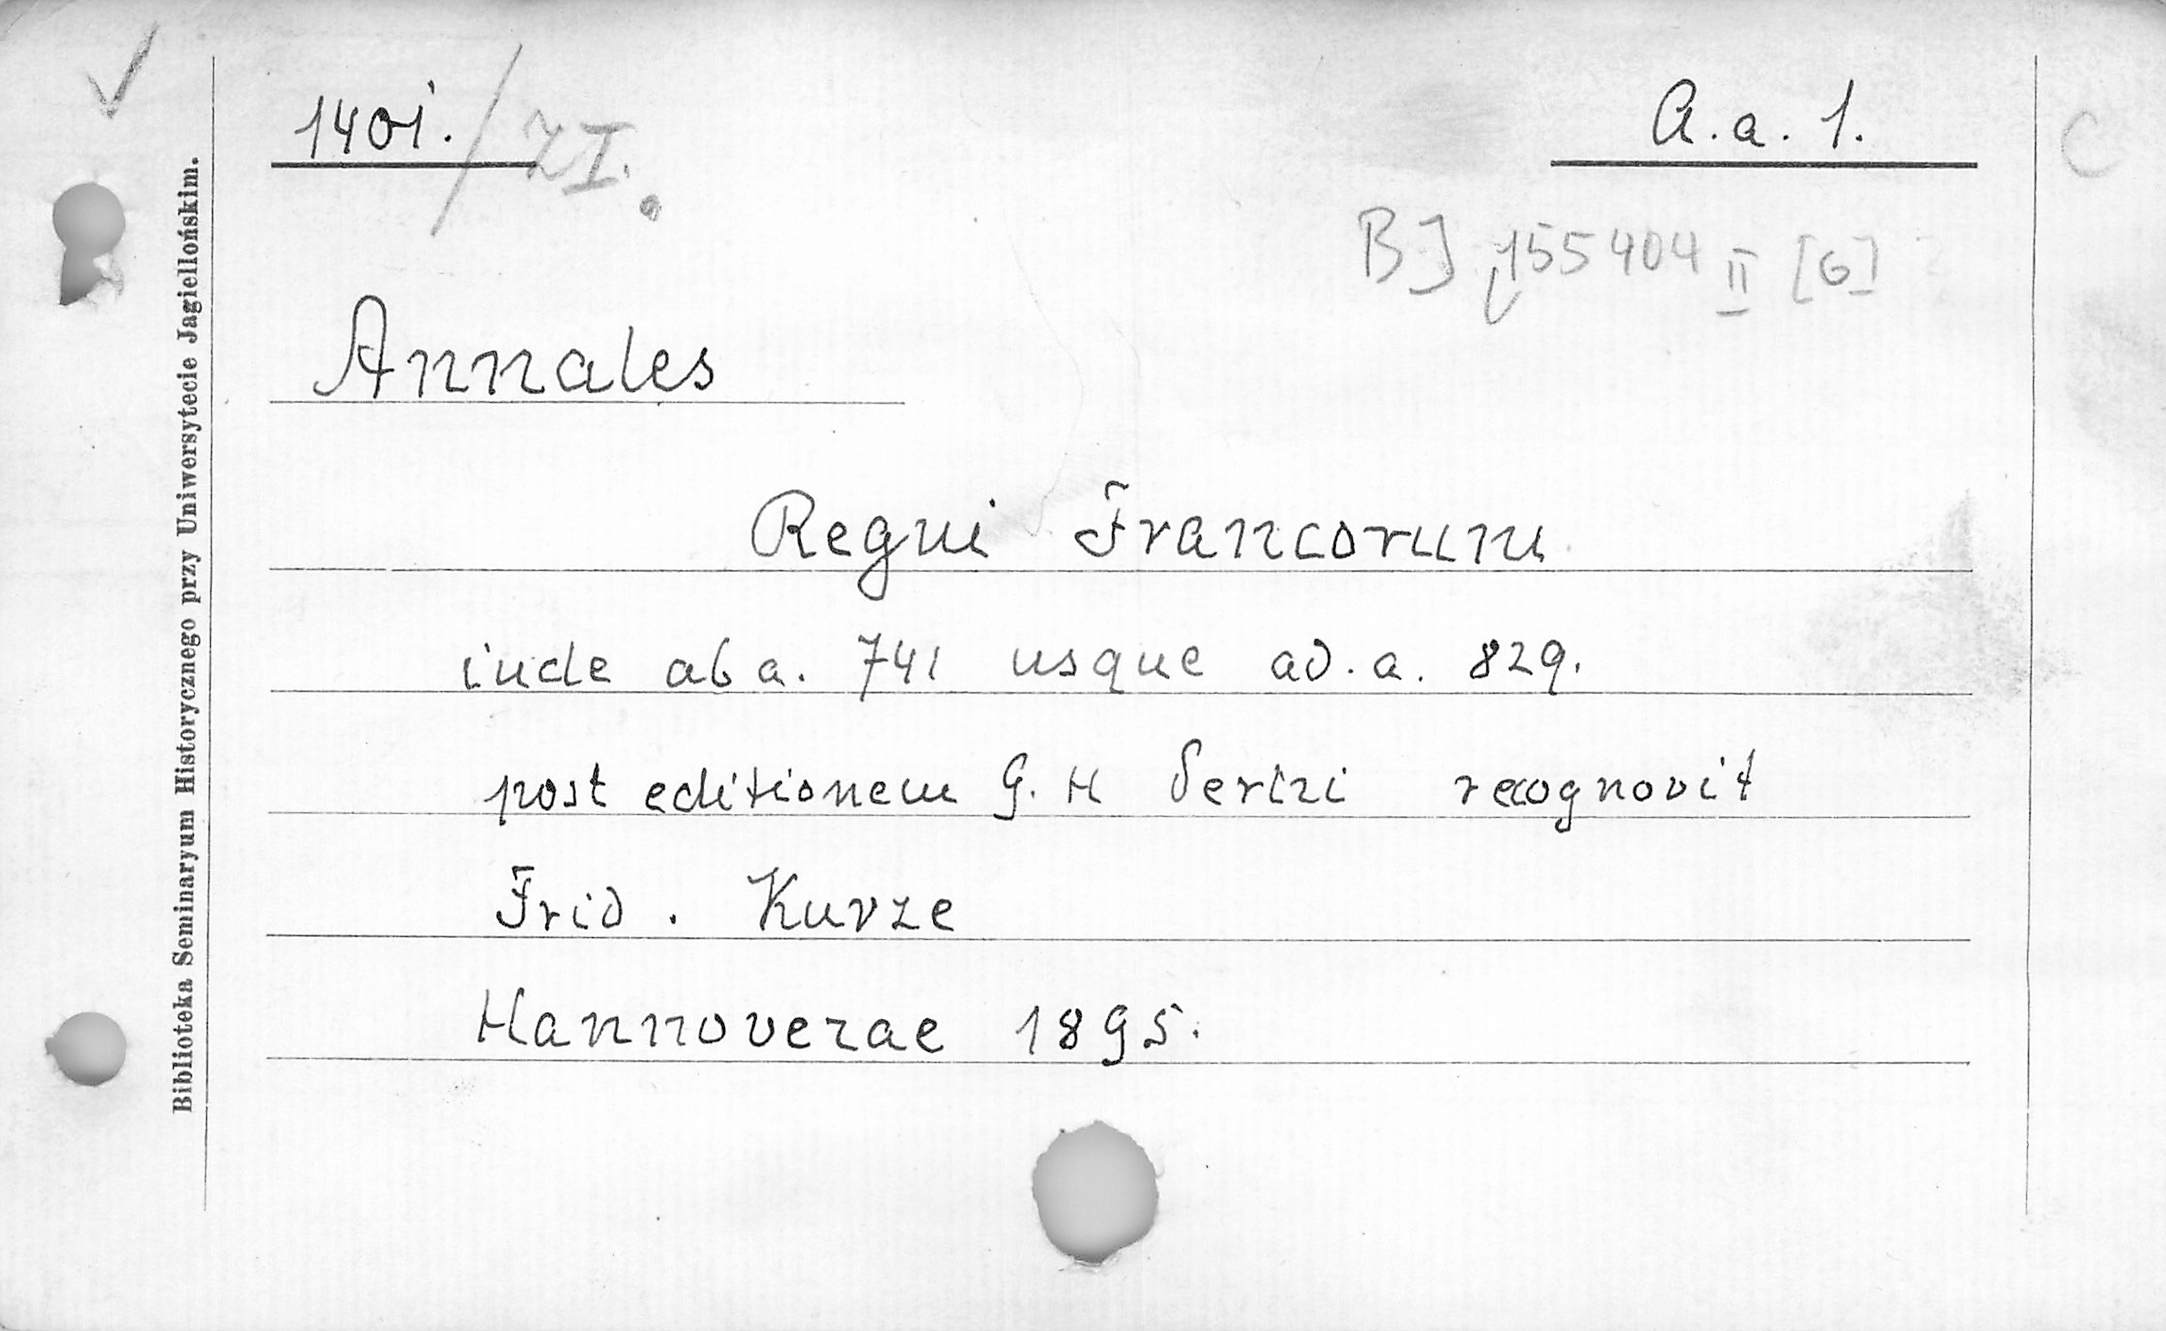 1401. / ZI.
A. a. 1.
BJ 155404 II [6]
C
Annales
Regni Francorum
inde ab a. 741 usque ad. a. 829.
post editionem G. H Pertzi recognovit
Frid. Kurze
Hannoverae 1895.
Biblioteka Seminaryum Historycznego przy Uniwersytecie Jagiellońskim.